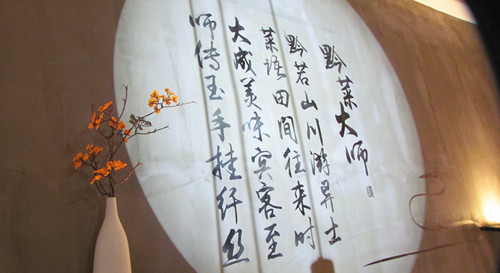 黔菜大师
黔若山川游异士
菜语田间往来时
大成美味宾客至
师传玉手挂纤丝